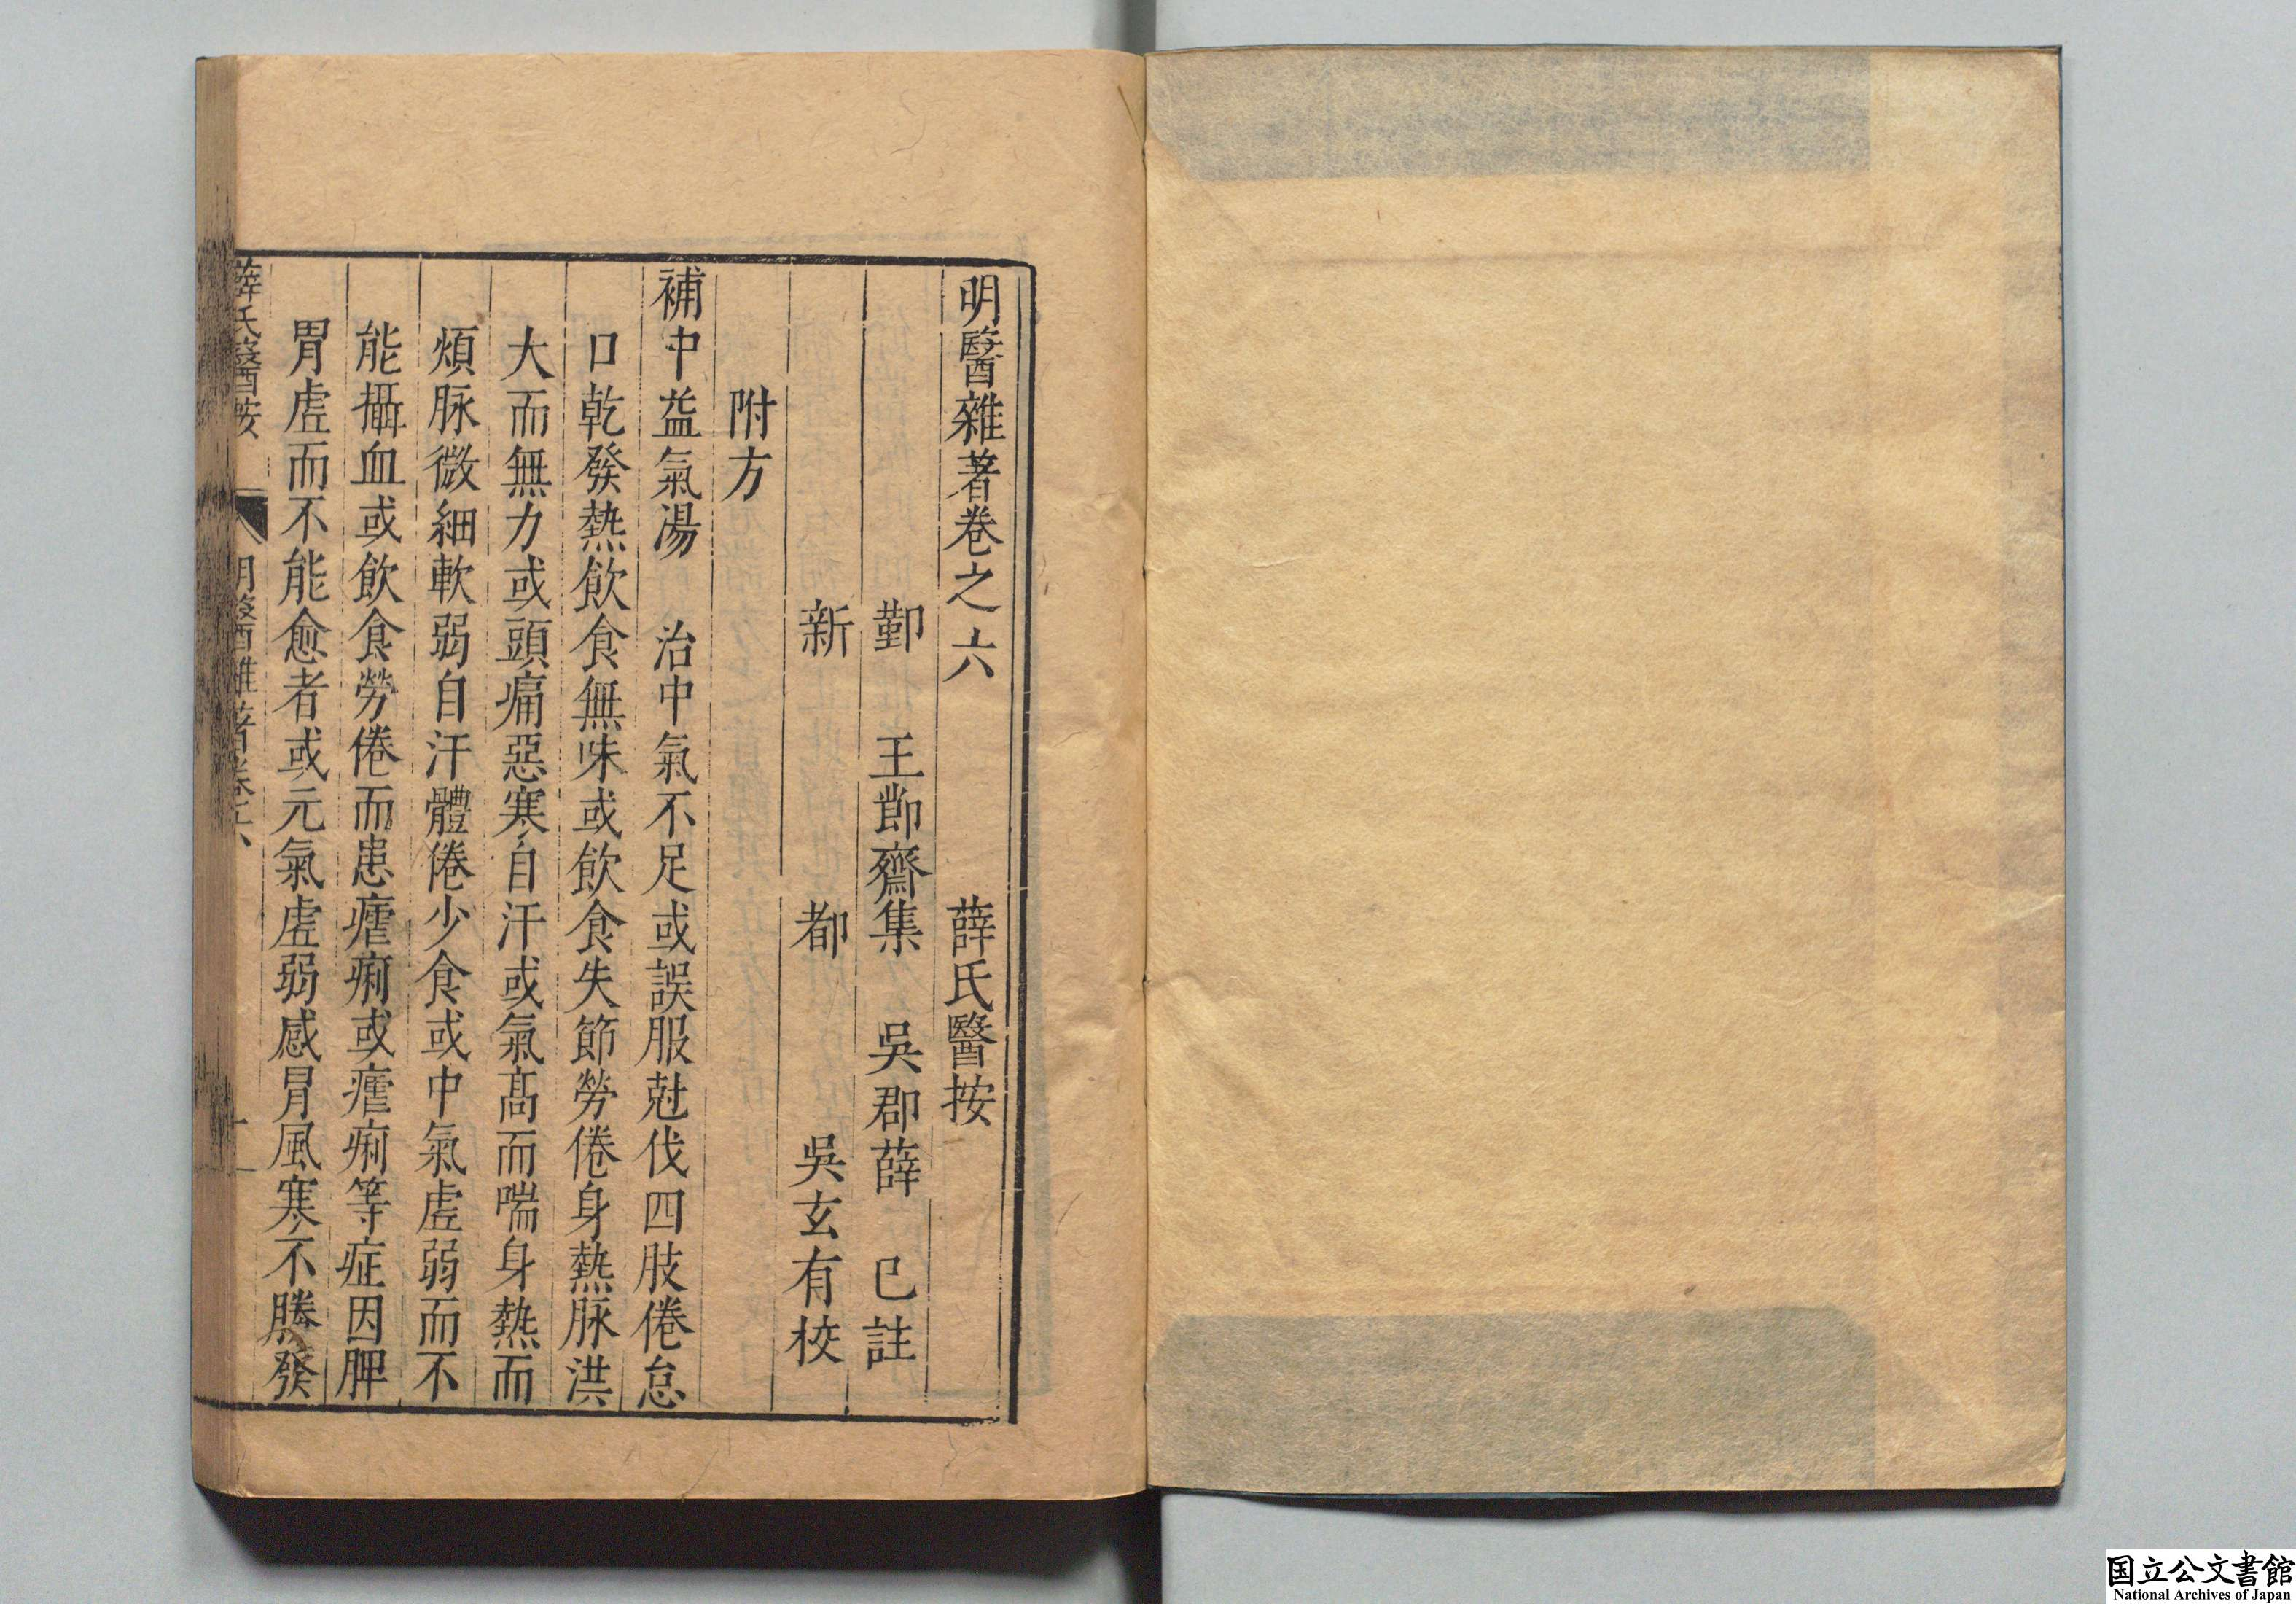 明醫雜著卷之六 薛氏醫按
鄞 王節齋集 吳郡薛 已註
新 都 吳玄有校
附方
補中益氣湯 治中氣不足或誤服尅伐四肢倦怠
口乾發熱飲食無味或飲食失節勞倦身熱脉洪
大而無力或頭痛惡寒自汗或氣髙而喘身熱而
煩脉微細軟弱自汗體倦少食或中氣虛弱而不
能攝血或飲食勞倦而患瘧痢或瘧痢等症因脾
胃虛而不能愈者或元氣虛弱感冒風寒不勝發
薛氏醫按 明醫雜著卷之六 一
国立公文書館
National Archives of Japan